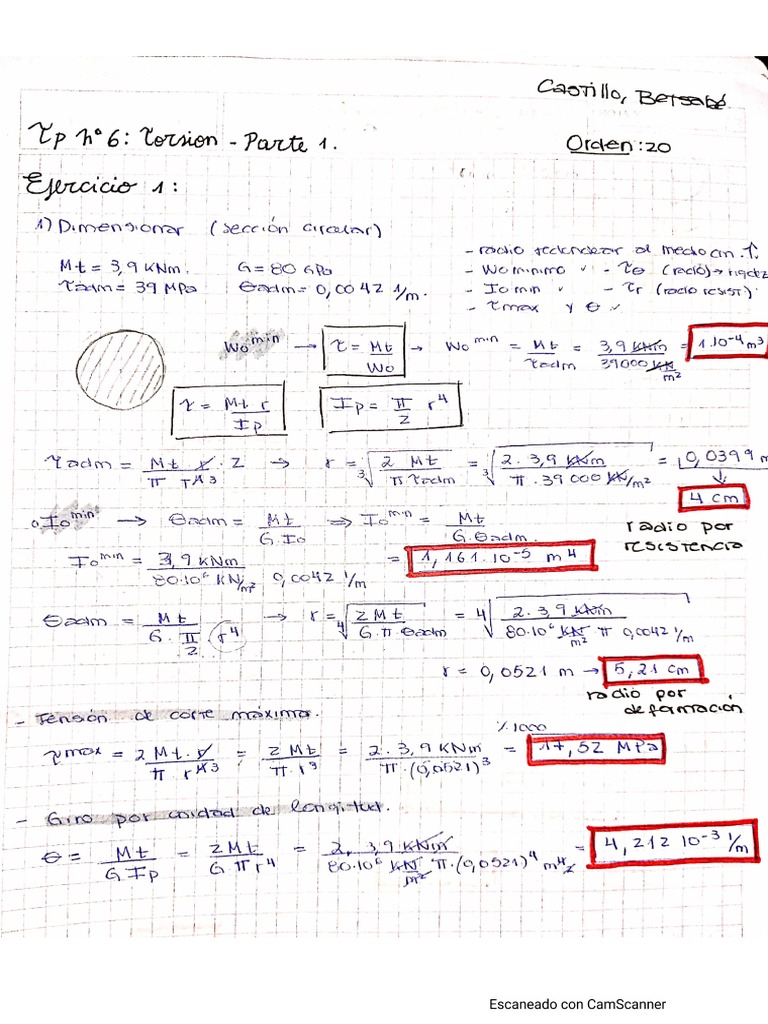 Castillo, Betsabé
Tp n° 6: Torsion - Parte 1.
Orden: 20
Ejercicio 1:
1) Dimensionar (sección circular)
- radio redondear al medio cm. ↑
Mt = 3,9 KNm. G = 80 GPa
- Wo minimo ✓ - re (radio) → rigidez
τadm = 39 MPa θadm = 0,0042 1/m.
- Io min ✓ - rr (radio resist.)
- τmax y θ ✓
Wo min → τ = Mt/Wo → Wo min = Mt/τadm = 3,9 KNm / 39000 KN/m² = 1.10⁻⁴ m³
τ = Mt r / Ip Ip = π/2 r⁴
τadm = Mt r . 2 / π r⁴³ → r = ³√(2 Mt / π τadm) = ³√(2. 3,9 KNm / π. 39 000 KN/m²) = 0,0399 m
↓
4 cm
o Io min → θadm = Mt / G. Io ⇒ Io min = Mt / G. θadm.
radio por
resistencia
Io min = 3,9 KNm / 80.10⁶ KN/m² 0,0042 1/m = 1,161.10⁻⁵ m⁴
θadm = Mt / G. π/2 . r⁴ → r = ⁴√(2 Mt / G. π. θadm) = ⁴√(2. 3,9 KNm / 80.10⁶ KN/m² π 0,0042 1/m)
r = 0,0521 m → 5,21 cm
radio por
deformación
- Tensión de corte máxima.
τmax = 2 Mt. r / π r⁴³ = 2 Mt / π. r³ = 2. 3,9 KNm / π. (0,0521)³ % 1000 = 17,52 MPa
- Giro por unidad de longitud.
θ = Mt / G Ip = 2 Mt / G. π r⁴ = 2. 3,9 KNm / 80.10⁶ KN/m² π. (0,0521)⁴ m⁴² = 4,212 10⁻³ 1/m
Escaneado con CamScanner